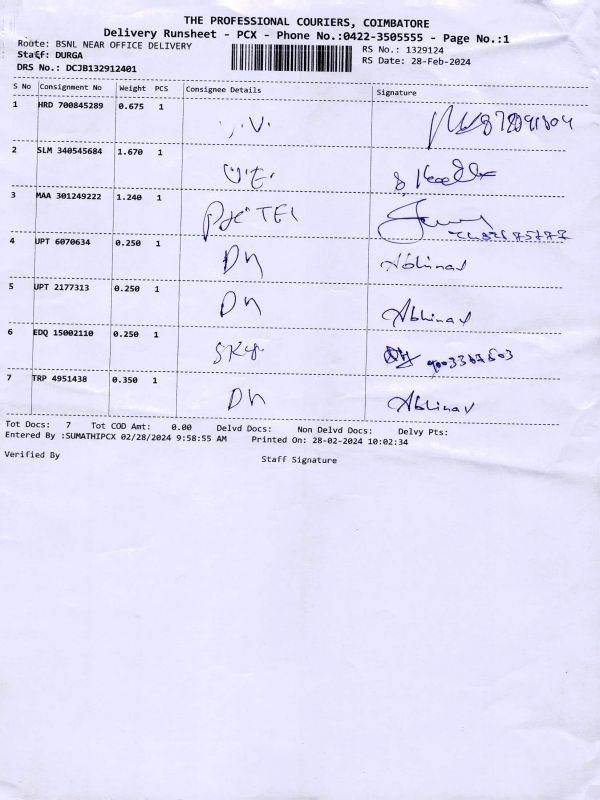 THE PROFESSIONAL COURIERS, COIMBATORE
Delivery Runsheet - PCX - Phone No.:0422-3505555 - Page No.:1
Route: BSNL NEAR OFFICE DELIVERY
RS No.: 1329124
Staff: DURGA
RS Date: 28-Feb-2024
DRS No.: DCJB132912401
S No Consignment No Weight PCS Consignee Details Signature
1 HRD 700845289 0.675 1
2 SLM 340545684 1.670 1
3 MAA 301249222 1.240 1
4 UPT 6070634 0.250 1 Dh Abhinav
5 UPT 2177313 0.250 1 Dh Abhinav
6 EDQ 15002110 0.250 1
7 TRP 4951438 0.350 1 Dh Abhinav
Tot Docs: 7 Tot COD Amt: 0.00 Delvd Docs: Non Delvd Docs: Delvy Pts:
Entered By :SUMATHIPCX 02/28/2024 9:58:55 AM Printed On: 28-02-2024 10:02:34
Verified By Staff Signature